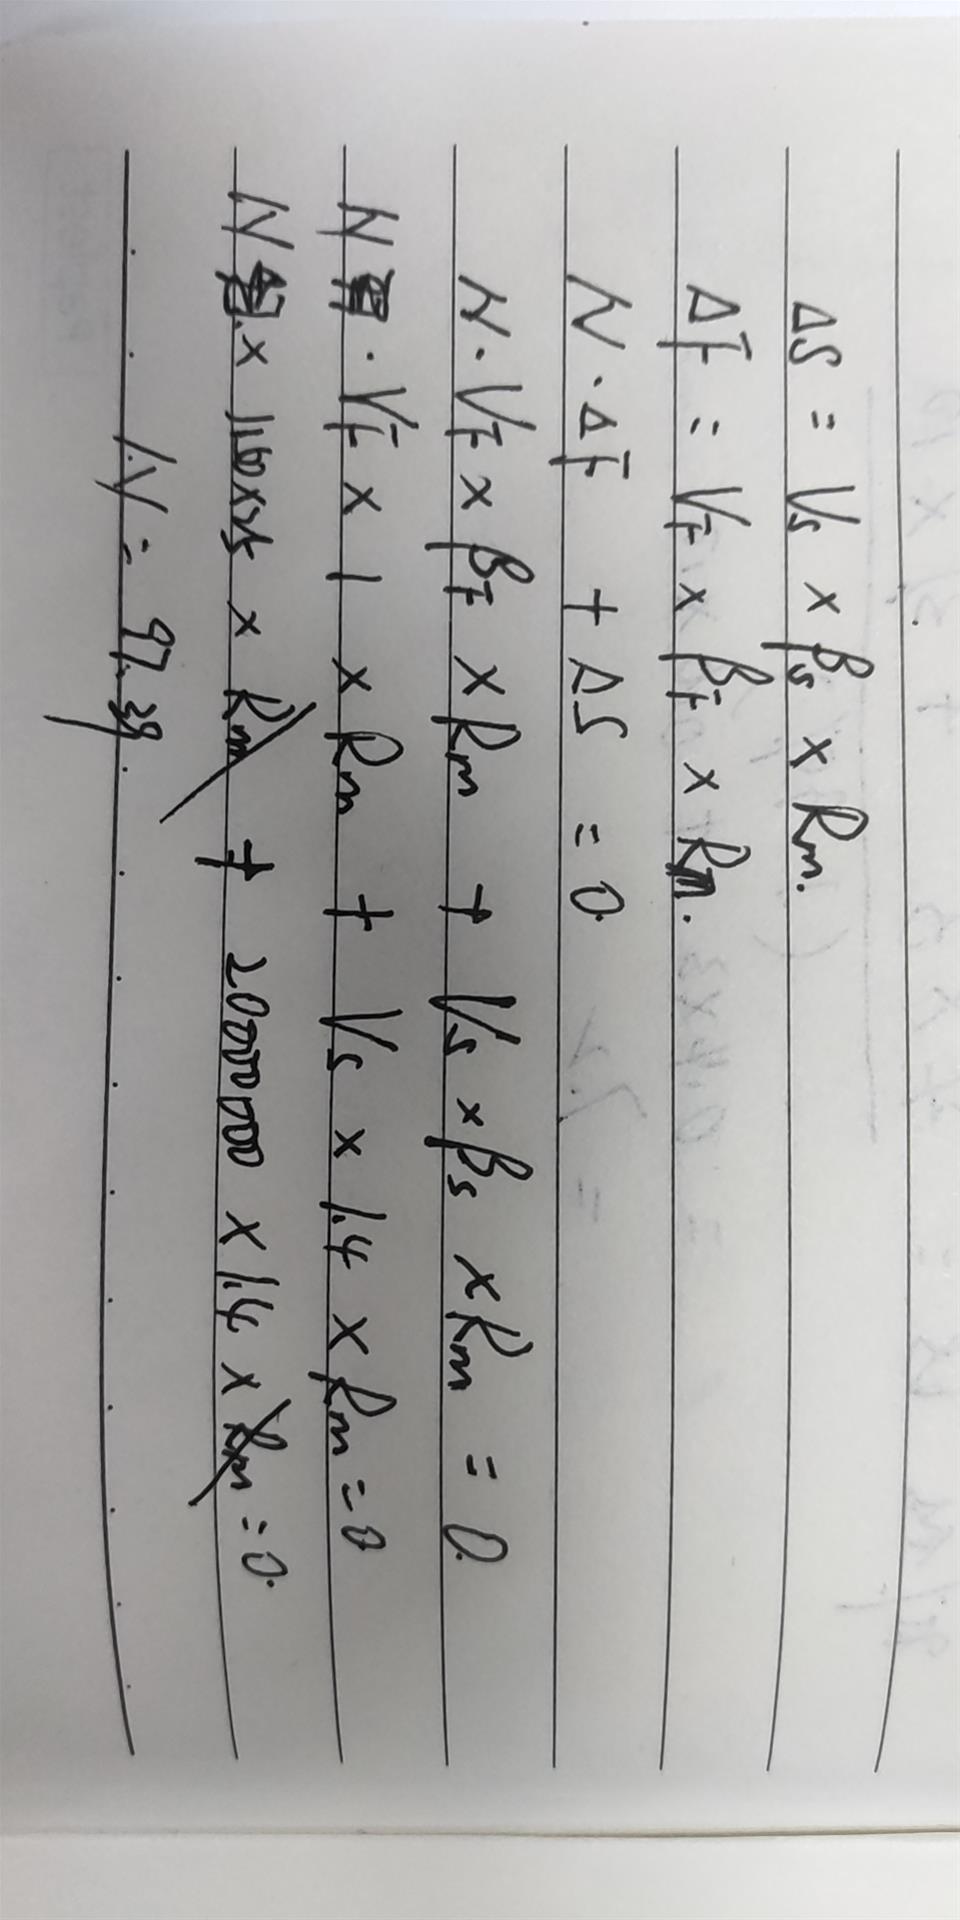 ΔS = Vs × βs × Rm.
ΔF = VF × βF × Rm.
N · ΔF + ΔS = 0.
N · VF × βF × Rm + Vs × βs × Rm = 0.
N · VF × 1 × Rm + Vs × 1.4 × Rm = 0
N × × Rm + 2000000 × 1.4 × Rm = 0.
N = 97.39